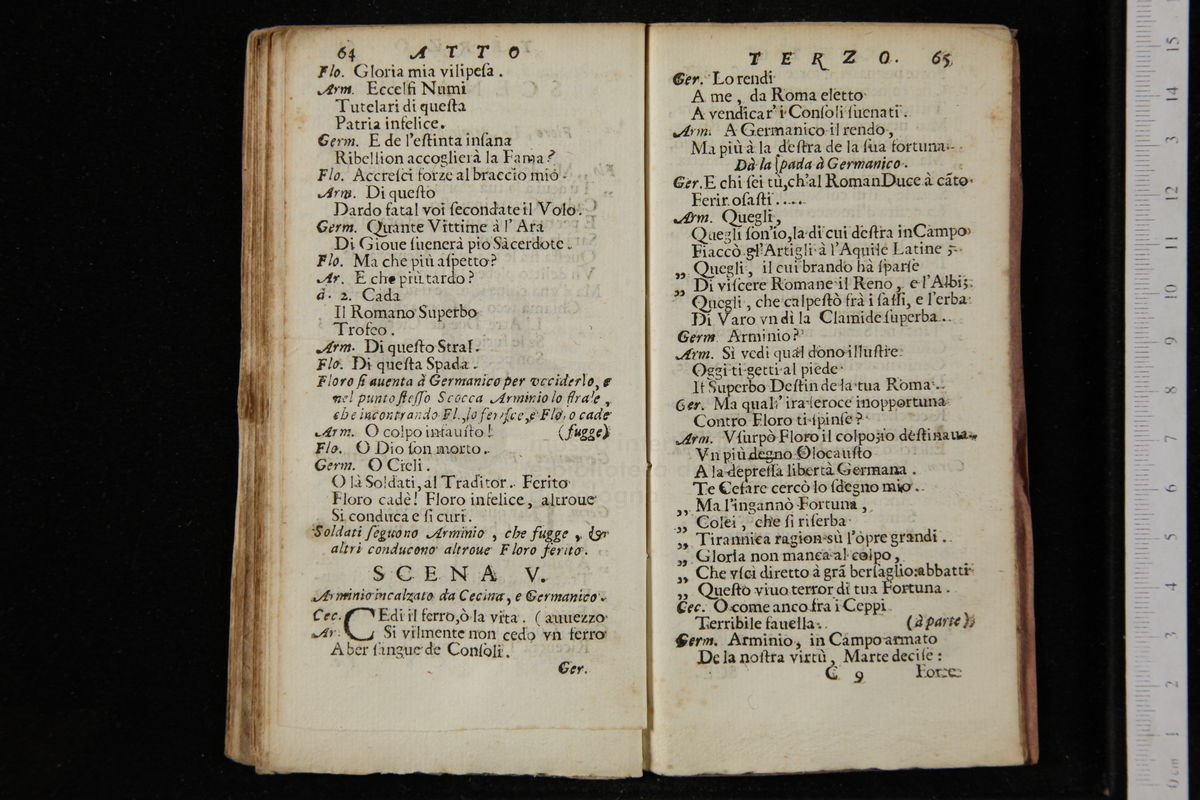 64 ATTO
Flo. Gloria mia vilipeſa.
Arm. Eccelſi Numi
Tutelari di queſta
Patria infelice.
Germ. E de l'eſtinta inſana
Ribellion accoglierà la Fama?
Flo. Accreſci forze al braccio mio.
Arm. Di queſto
Dardo fatal voi ſecondate il Volo.
Germ. Quante Vittime à l'Ara
Di Gioue ſuenerà pio Sacerdote.
Flo. Ma che più aſpetto?
Ar. E che più tardo?
à. 2. Cada
Il Romano Superbo
Trofeo.
Arm. Di queſto Stral.
Flo. Di queſta Spada.
Floro ſi auenta à Germanico per vcciderlo, e
nel punto ſteſſo Scocca Arminio lo ſtrale,
che incontrando Fl., lo feriſce, e Floro cade
Arm. O colpo infauſto! (fugge)
Flo. O Dio ſon morto.
Germ. O Cieli.
O là Soldati, al Traditor. Ferito
Floro cadè! Floro infelice, altroue
Si conduca e ſi curi.
Soldati ſeguono Arminio, che fugge, &
altri conducono altroue Floro ferito.
SCENA V.
Arminio incalzato da Cecina, e Germanico.
Cec. CEdi il ferro, ò la vita. (auuezzo
Ar. Si vilmente non cedo vn ferro
A ber ſangue de Conſoli.
Ger.
TERZO. 65
Ger. Lo rendi
A me, da Roma eletto
A vendicar' i Conſoli ſuenati.
Arm. A Germanico il rendo,
Ma più à la deſtra de la ſua fortuna.
Dà la ſpada à Germanico.
Ger. E chi ſei tù, ch'al Roman Duce à cãto
Ferir oſaſti.....
Arm. Quegli,
Quegli ſon'io, la di cui deſtra in Campo
Fiaccò gl'Artigli à l'Aquile Latine;
„ Quegli, il cui brando hà ſparſe
„ Di viſcere Romane il Reno, e l'Albi;
Quegli, che calpeſtò frà i ſaſſi, e l'erba
Di Varo vn dì la Clamide ſuperba.
Germ Arminio?
Arm. Sì vedi qual dono illuſtre
Oggi ti getti al piede
Il Superbo Deſtin de la tua Roma.
Ger. Ma qual' ira feroce inopportuna
Contro Floro ti ſpinſe?
Arm. Vſurpò Floro il colpo; io deſtinaua
Vn più degno Olocauſto
A la depreſſa libertà Germana.
Te Ceſare cercò lo ſdegno mio.
„ Ma l'ingannò Fortuna,
„ Colei, che ſi riſerba
„ Tirannica ragion sù l'opre grandi.
„ Gloria non manca al colpo,
„ Che vſcì diretto à grã berſaglio: abbatti
„ Queſto viuo terror di tua Fortuna.
Cec. O come anco fra i Ceppi
Terribile fauella. (à parte)
Germ. Arminio, in Campo armato
De la noſtra virtù, Marte deciſe:
C 9 Forte